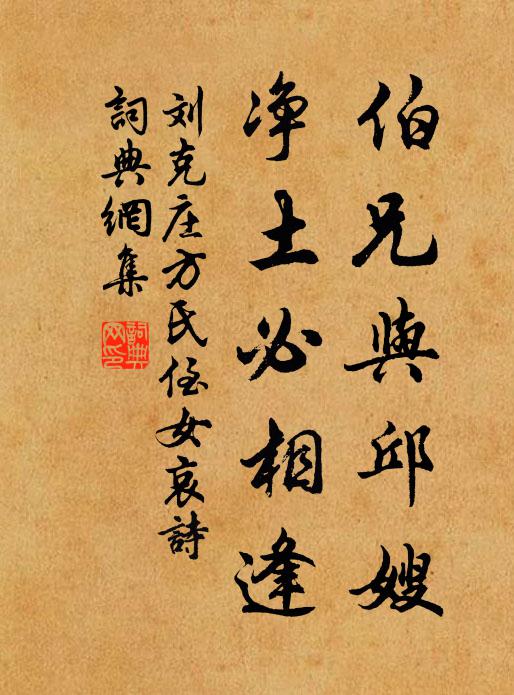 伯兄與邱嫂
净土必相逢
刘克庄方氏侄女哀詩
詞典網集
詞典网印